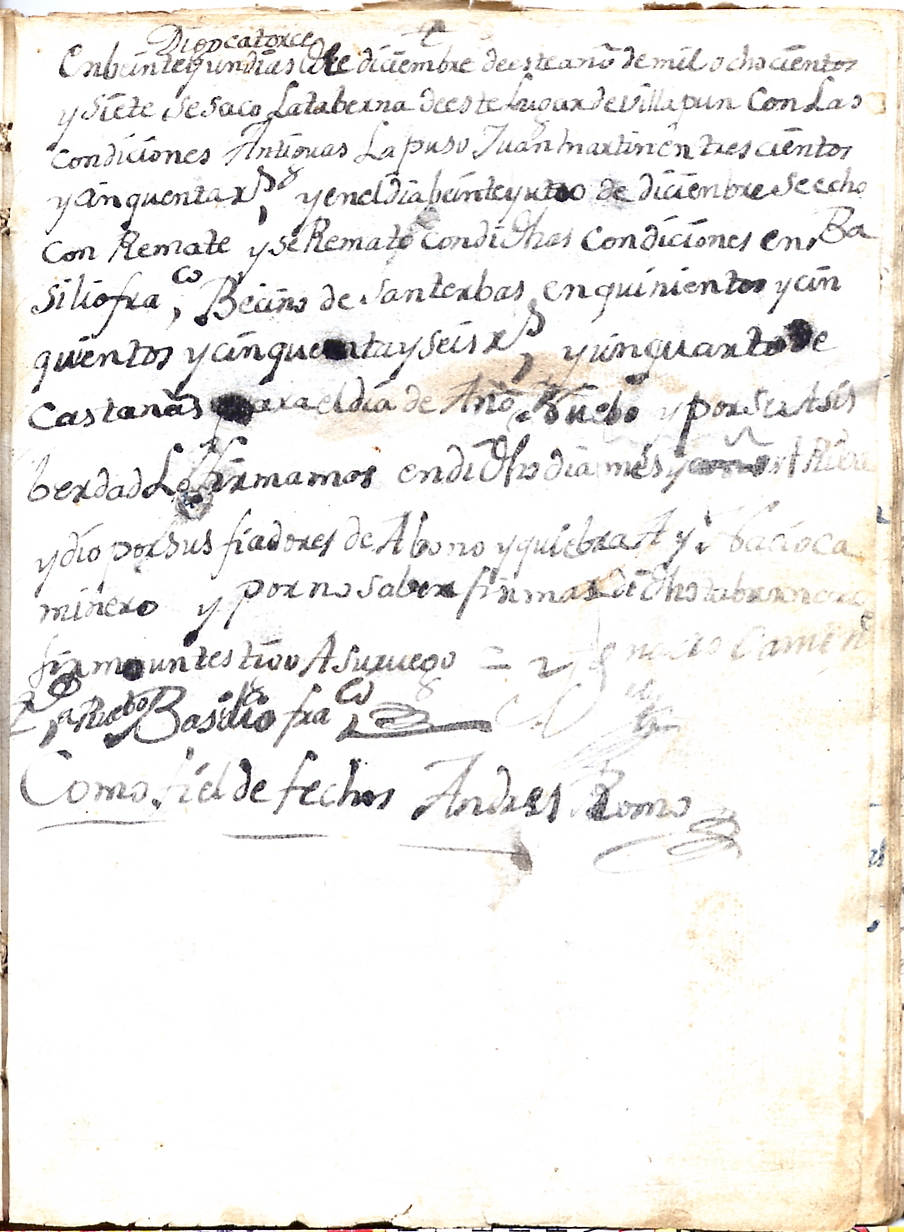 Dio o catorce
En beinte y un dias de diciembre de este año de mil ochocientos
y siete se saco La taberna de este Lugar de Villapun Con Las
Condiciones Antiguas La puso Juan martin en tres cientos
y cinquenta rs y en el dia beinte y uno de diciembre se echo
Con Remate y se Remato con dichas Condiciones en Ba
silio franco Becino de Santerbas en quinientos y cin
quientos y cinquenta y seis rs y un quarto de
Castañas para el dia de Año Nuebo y por ser Asis
berdad Lo firmamos en dicho dia mes y año
y dio por sus fiadores de Abono y quiebra A Ygnacio Ca
minero y por no saber firmar dicho tabernero
firmo un testigo A su ruego = Ygnacio Camin
Basilio franco
Como fiel de fechos Andres Romo